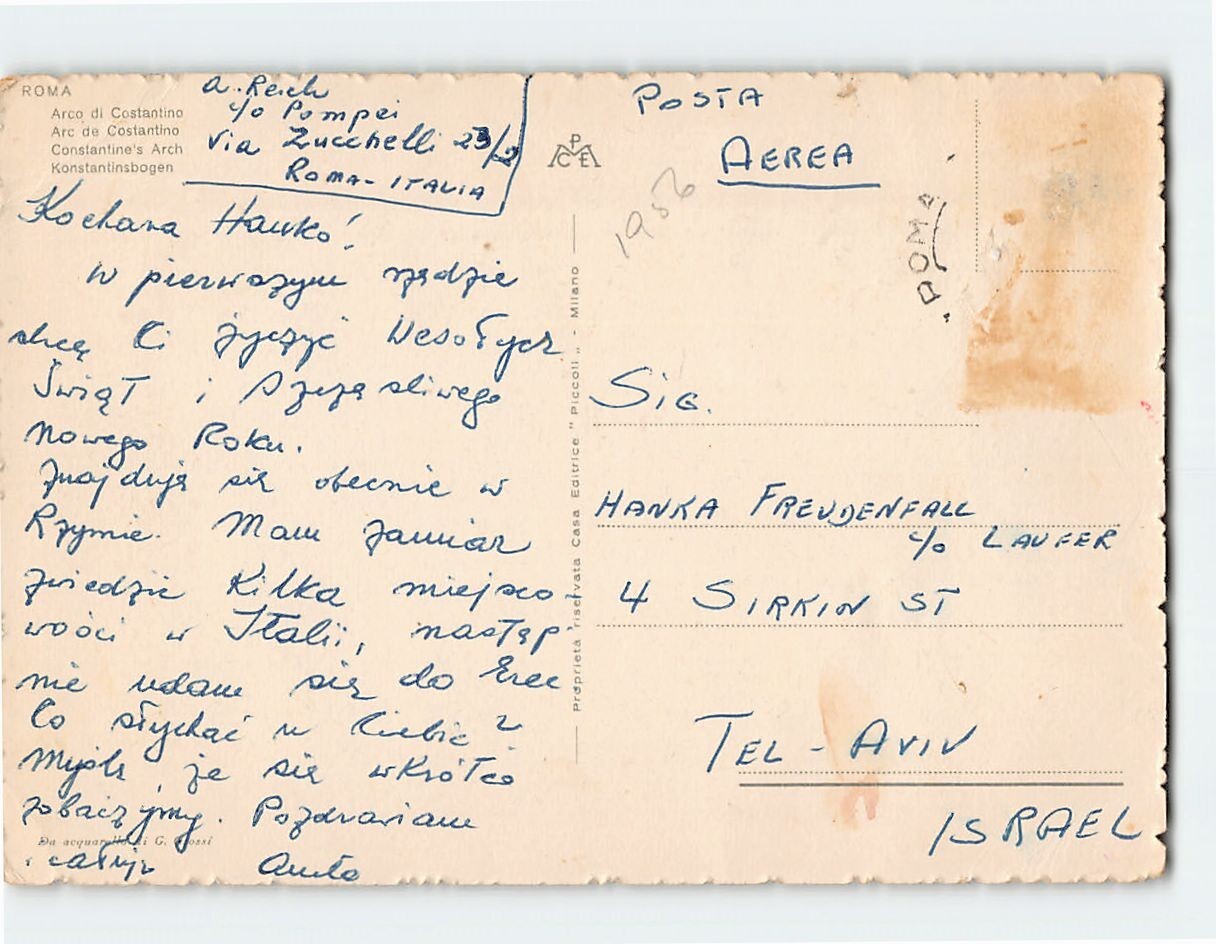 ROMA
Arco di Costantino
Arc de Costantino
Constantine's Arch
Konstantinsbogen
A. Reich
c/o Pompei
Via Zucchelli 23/2
ROMA - ITALIA
Kochana Hanko!
W pierwszym rzędzie
chcę Ci życzyć Wesołych
Świąt i Szczęśliwego
Nowego Roku.
Znajduję się obecnie w
Rzymie. Mam zamiar
zwiedzić kilka miejsco-
wości w Italii, następ-
nie udam się do Erec
Co słychać u Ciebie?
Myślę, że się wkrótce
zobaczymy. Pozdrawiam
i całuję
Da acquarello di G. Rossi
Proprietà riservata Casa Editrice "Piccoli" - Milano
PACE
POSTA
AEREA
1956
ROMA
SIG.
HANKA FREUDENFALL
c/o LAUFER
4 SIRKIN ST
TEL-AVIV
ISRAEL